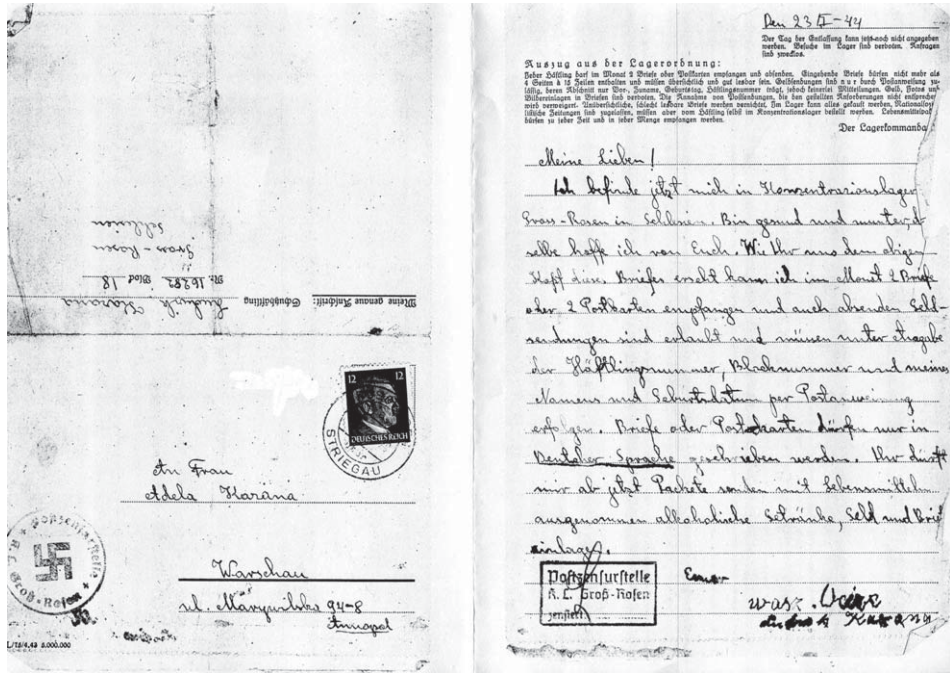 Meine genaue Anschrift:
Schutzhäftling
Ludwik Karana
Nr. 16282 Block 18
Gross-Rosen
Schlesien
12 12
DEUTSCHES REICH
STRIEGAU
An Frau
Adela Karana
Warschau
ul. Marywilska 94-8
Annopol
Postzensurstelle
K.L. Groß-Rosen
Den 23 I-44
Der Tag der Entlassung kann jetzt noch nicht angegeben
werden. Besuche im Lager sind verboten. Anfragen
sind zwecklos.
Auszug aus der Lagerordnung:
Jeder Häftling darf im Monat 2 Briefe oder Postkarten empfangen und absenden. Eingehende Briefe dürfen nicht mehr als
4 Seiten à 15 Zeilen enthalten und müssen übersichtlich und gut lesbar sein. Geldsendungen sind nur durch Postanweisung zu-
lässig, deren Abschnitt nur Vor-, Zuname, Geburtstag, Häftlingsnummer trägt, jedoch keinerlei Mitteilungen. Geld, Fotos und
Bildereinlagen in Briefen sind verboten. Die Annahme von Postsendungen, die den gestellten Anforderungen nicht entsprechen
wird verweigert. Unübersichtliche, schlecht lesbare Briefe werden vernichtet. Im Lager kann alles gekauft werden. Nationalso-
zialistische Zeitungen sind zugelassen, müssen aber vom Häftling selbst im Konzentrationslager bestellt werden. Lebensmittelpak
dürfen zu jeder Zeit und in jeder Menge empfangen werden.
Der Lagerkommandant
Meine Lieben!
Ich befinde jetzt mich in Konzentrazionslager
Gross-Rosen in Schlesien. Bin gesund und munter, d
selbe hoffe ich von Euch. Wie Ihr aus dem obigen
Kopf dieses Briefes erseht kann ich im Monat 2 Briefe
oder 2 Postkarten empfangen und auch absenden. Geld-
sendungen sind erlaubt und müssen unter Angabe
der Häftlingsnummer, Blocknummer und meines
Namens und Geburtsdatum per Postanweisung
erfolgen. Briefe oder Postkarten dürfen nur in
Deutscher Sprache geschrieben werden. Ihr dürft
mir ab jetzt Packete senden mit Lebensmitteln
ausgenommen alkoholische Getränke, Geld und Brief
einlagen.
Postzensurstelle
K.L. Groß-Rosen
zensiert
Euer